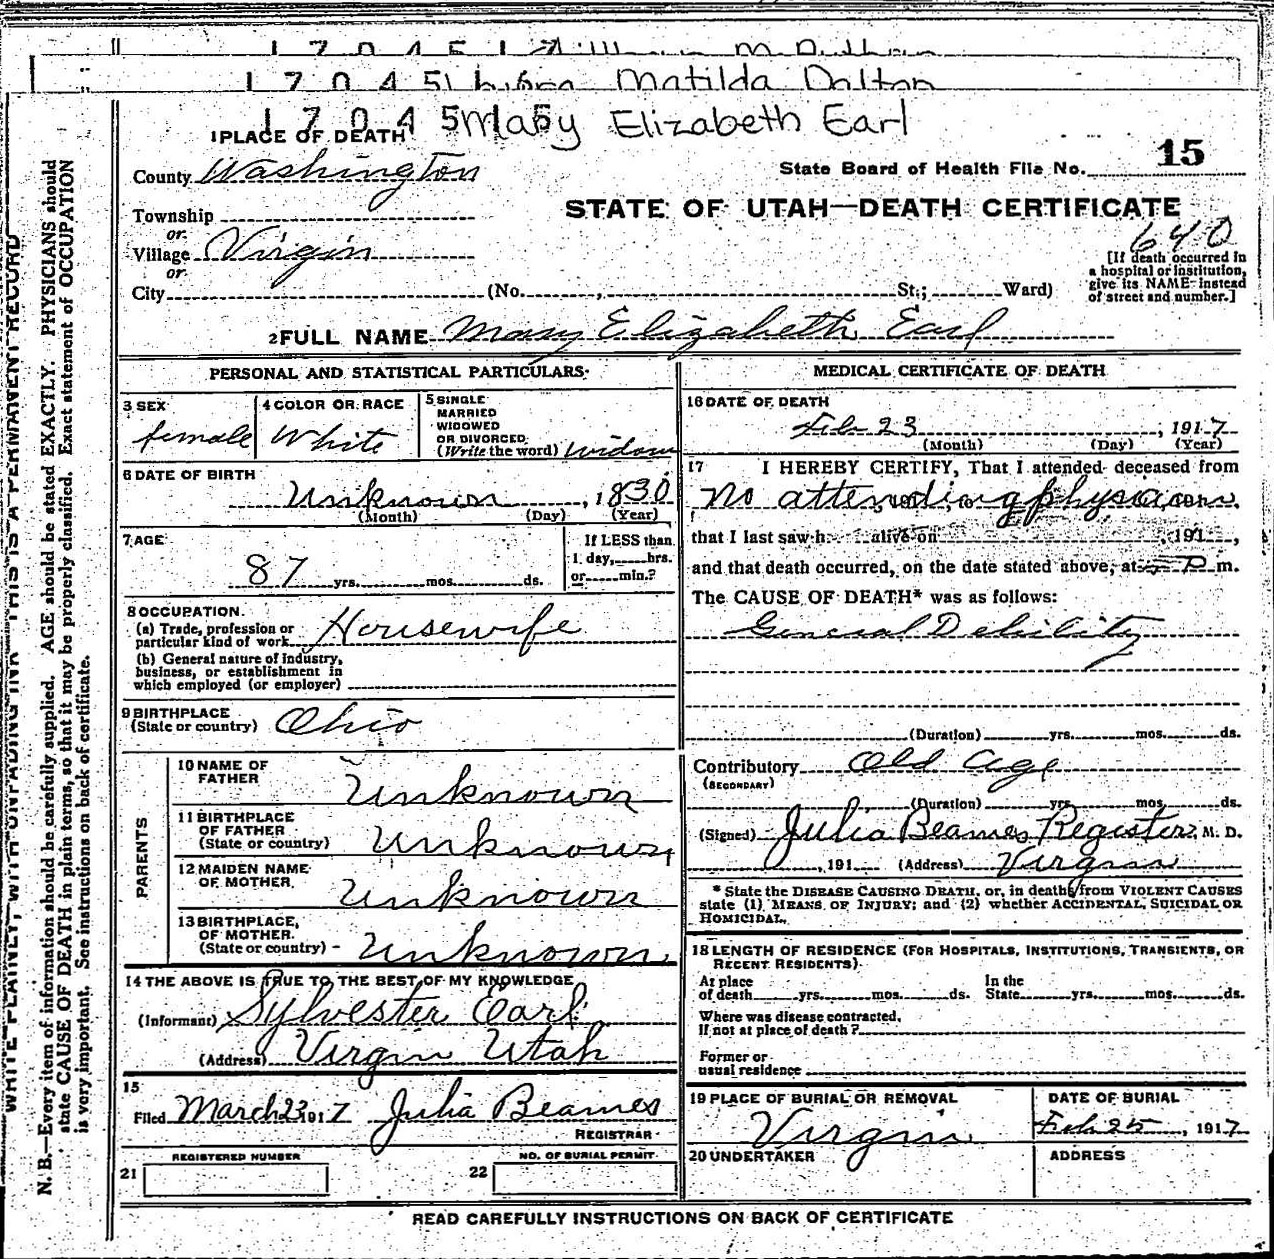 Matilda Dalton
1 7 0 4 5 Mary Elizabeth Earl
1 PLACE OF DEATH
County Washington
State Board of Health File No. 15
Township
STATE OF UTAH—DEATH CERTIFICATE
or
640
Village Virgin
or
City (No. , St.; Ward)
[If death occurred in
a hospital or institution,
give its NAME instead
of street and number.]
2 FULL NAME Mary Elizabeth Earl
PERSONAL AND STATISTICAL PARTICULARS
3 SEX
female
4 COLOR OR RACE
White
5 SINGLE
MARRIED
WIDOWED
OR DIVORCED
(Write the word) widow
6 DATE OF BIRTH
Unknown , 1830
(Month) (Day) (Year)
7 AGE
87 yrs. mos. ds.
If LESS than
1 day, hrs.
or min.?
8 OCCUPATION.
(a) Trade, profession or
particular kind of work Housewife
(b) General nature of industry,
business, or establishment in
which employed (or employer)
9 BIRTHPLACE
(State or country) Ohio
PARENTS
10 NAME OF
FATHER Unknown
11 BIRTHPLACE
OF FATHER
(State or country) Unknown
12 MAIDEN NAME
OF MOTHER Unknown
13 BIRTHPLACE,
OF MOTHER.
(State or country) Unknown
14 THE ABOVE IS TRUE TO THE BEST OF MY KNOWLEDGE
(Informant) Sylvester Earl
(Address) Virgin Utah
15
Filed March 23 1917 Julia Beames
REGISTRAR
REGISTERED NUMBER
21
NO. OF BURIAL PERMIT
22
MEDICAL CERTIFICATE OF DEATH
16 DATE OF DEATH
Feb 23 , 1917
(Month) (Day) (Year)
17 I HEREBY CERTIFY, That I attended deceased from
No attending physician
that I last saw h alive on , 191 ,
and that death occurred, on the date stated above, at 5 P m.
The CAUSE OF DEATH* was as follows:
General Debility
(Duration) yrs. mos. ds.
Contributory Old Age
(SECONDARY)
(Duration) yrs. mos. ds.
(Signed) Julia Beames Register, M. D.
, 191 (Address) Virgin
* State the DISEASE CAUSING DEATH, or, in deaths from VIOLENT CAUSES
state (1) MEANS OF INJURY; and (2) whether ACCIDENTAL, SUICIDAL OR
HOMICIDAL.
18 LENGTH OF RESIDENCE (FOR HOSPITALS, INSTITUTIONS, TRANSIENTS, OR
RECENT RESIDENTS)
At place
of death yrs. mos. ds.
In the
State yrs. mos. ds.
Where was disease contracted,
if not at place of death?
Former or
usual residence
19 PLACE OF BURIAL OR REMOVAL
Virgin
DATE OF BURIAL
Feb 25 , 1917
20 UNDERTAKER
ADDRESS
READ CAREFULLY INSTRUCTIONS ON BACK OF CERTIFICATE
WRITE PLAINLY, WITH UNFADING INK—THIS IS A PERMANENT RECORD
N. B.—Every item of information should be carefully supplied. AGE should be stated EXACTLY. PHYSICIANS should
state CAUSE OF DEATH in plain terms, so that it may be properly classified. Exact statement of OCCUPATION
is very important. See instructions on back of certificate.